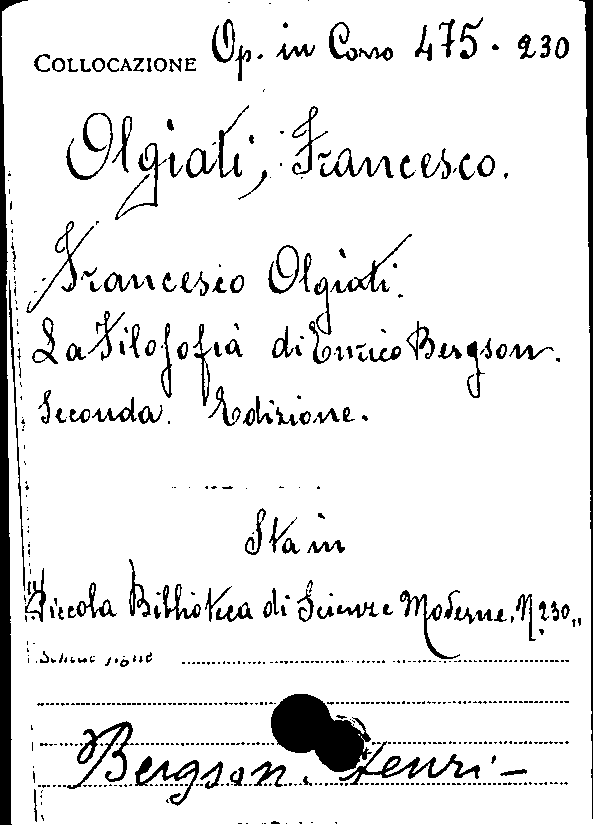 COLLOCAZIONE Op. in Corso 475. 230
Olgiati, Francesco.
Francesco Olgiati.
La Filosofia di Enrico Bergson.
Seconda. Edizione.
Sta in
"Piccola Biblioteca di Scienze Moderne. N. 230"
Bergson. Henri-